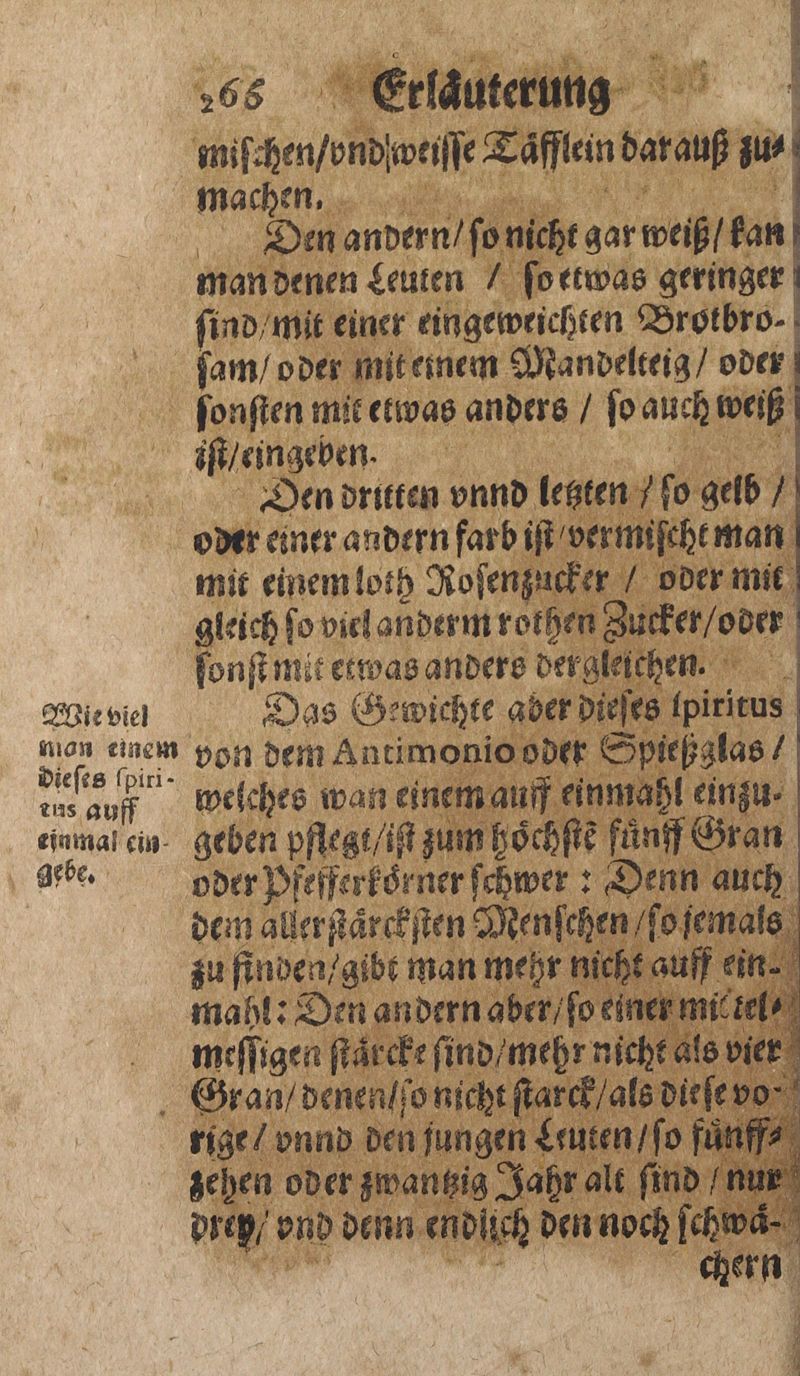 266 Erläuterung
miſchen/vnd weiſſe Täfflein darauß zu⸗
machen.
Den andern/ ſo nicht gar weiß/ kan
man denen Leuten / ſo etwas geringer
ſind/mit einer eingeweichten Brotbro-
ſam/ oder mit einem Mandelteig/ oder
ſonſten mit etwas anders / ſo auch weiß
iſt/eingeben.
Den dritten vnnd letzten / ſo gelb /
oder einer andern farb iſt/vermiſcht man
mit einem loth Roſenzucker / oder mit
gleich ſo viel anderm rothen Zucker/oder
ſonſt mit etwas anders dergleichen.
Das Gewichte aber dieſes ſpiritus
von dem Antimonio oder Spießglas /
welches wan einem auff einmahl einzu-
geben pflegt/iſt zum höchſtē fünff Gran
oder Pfefferkörner ſchwer : Denn auch
dem allerſtärckſten Menſchen/ſo jemals
zu finden/gibt man mehr nicht auff ein-
mahl: Den andern aber/ſo einer mittel⸗
meſſigen ſtärcke ſind/mehr nicht als vier
Gran/ denen/ſo nicht ſtarck/als dieſe vo-
rige/ vnnd den jungen Leuten/ſo fünff⸗
zehen oder zwantzig Jahr alt ſind / nur
drey/ vnd denn endlich den noch ſchwä-
chern
Wie viel
man einem
dieſes ſpiri-
tus auff
einmal ein-
gebe.